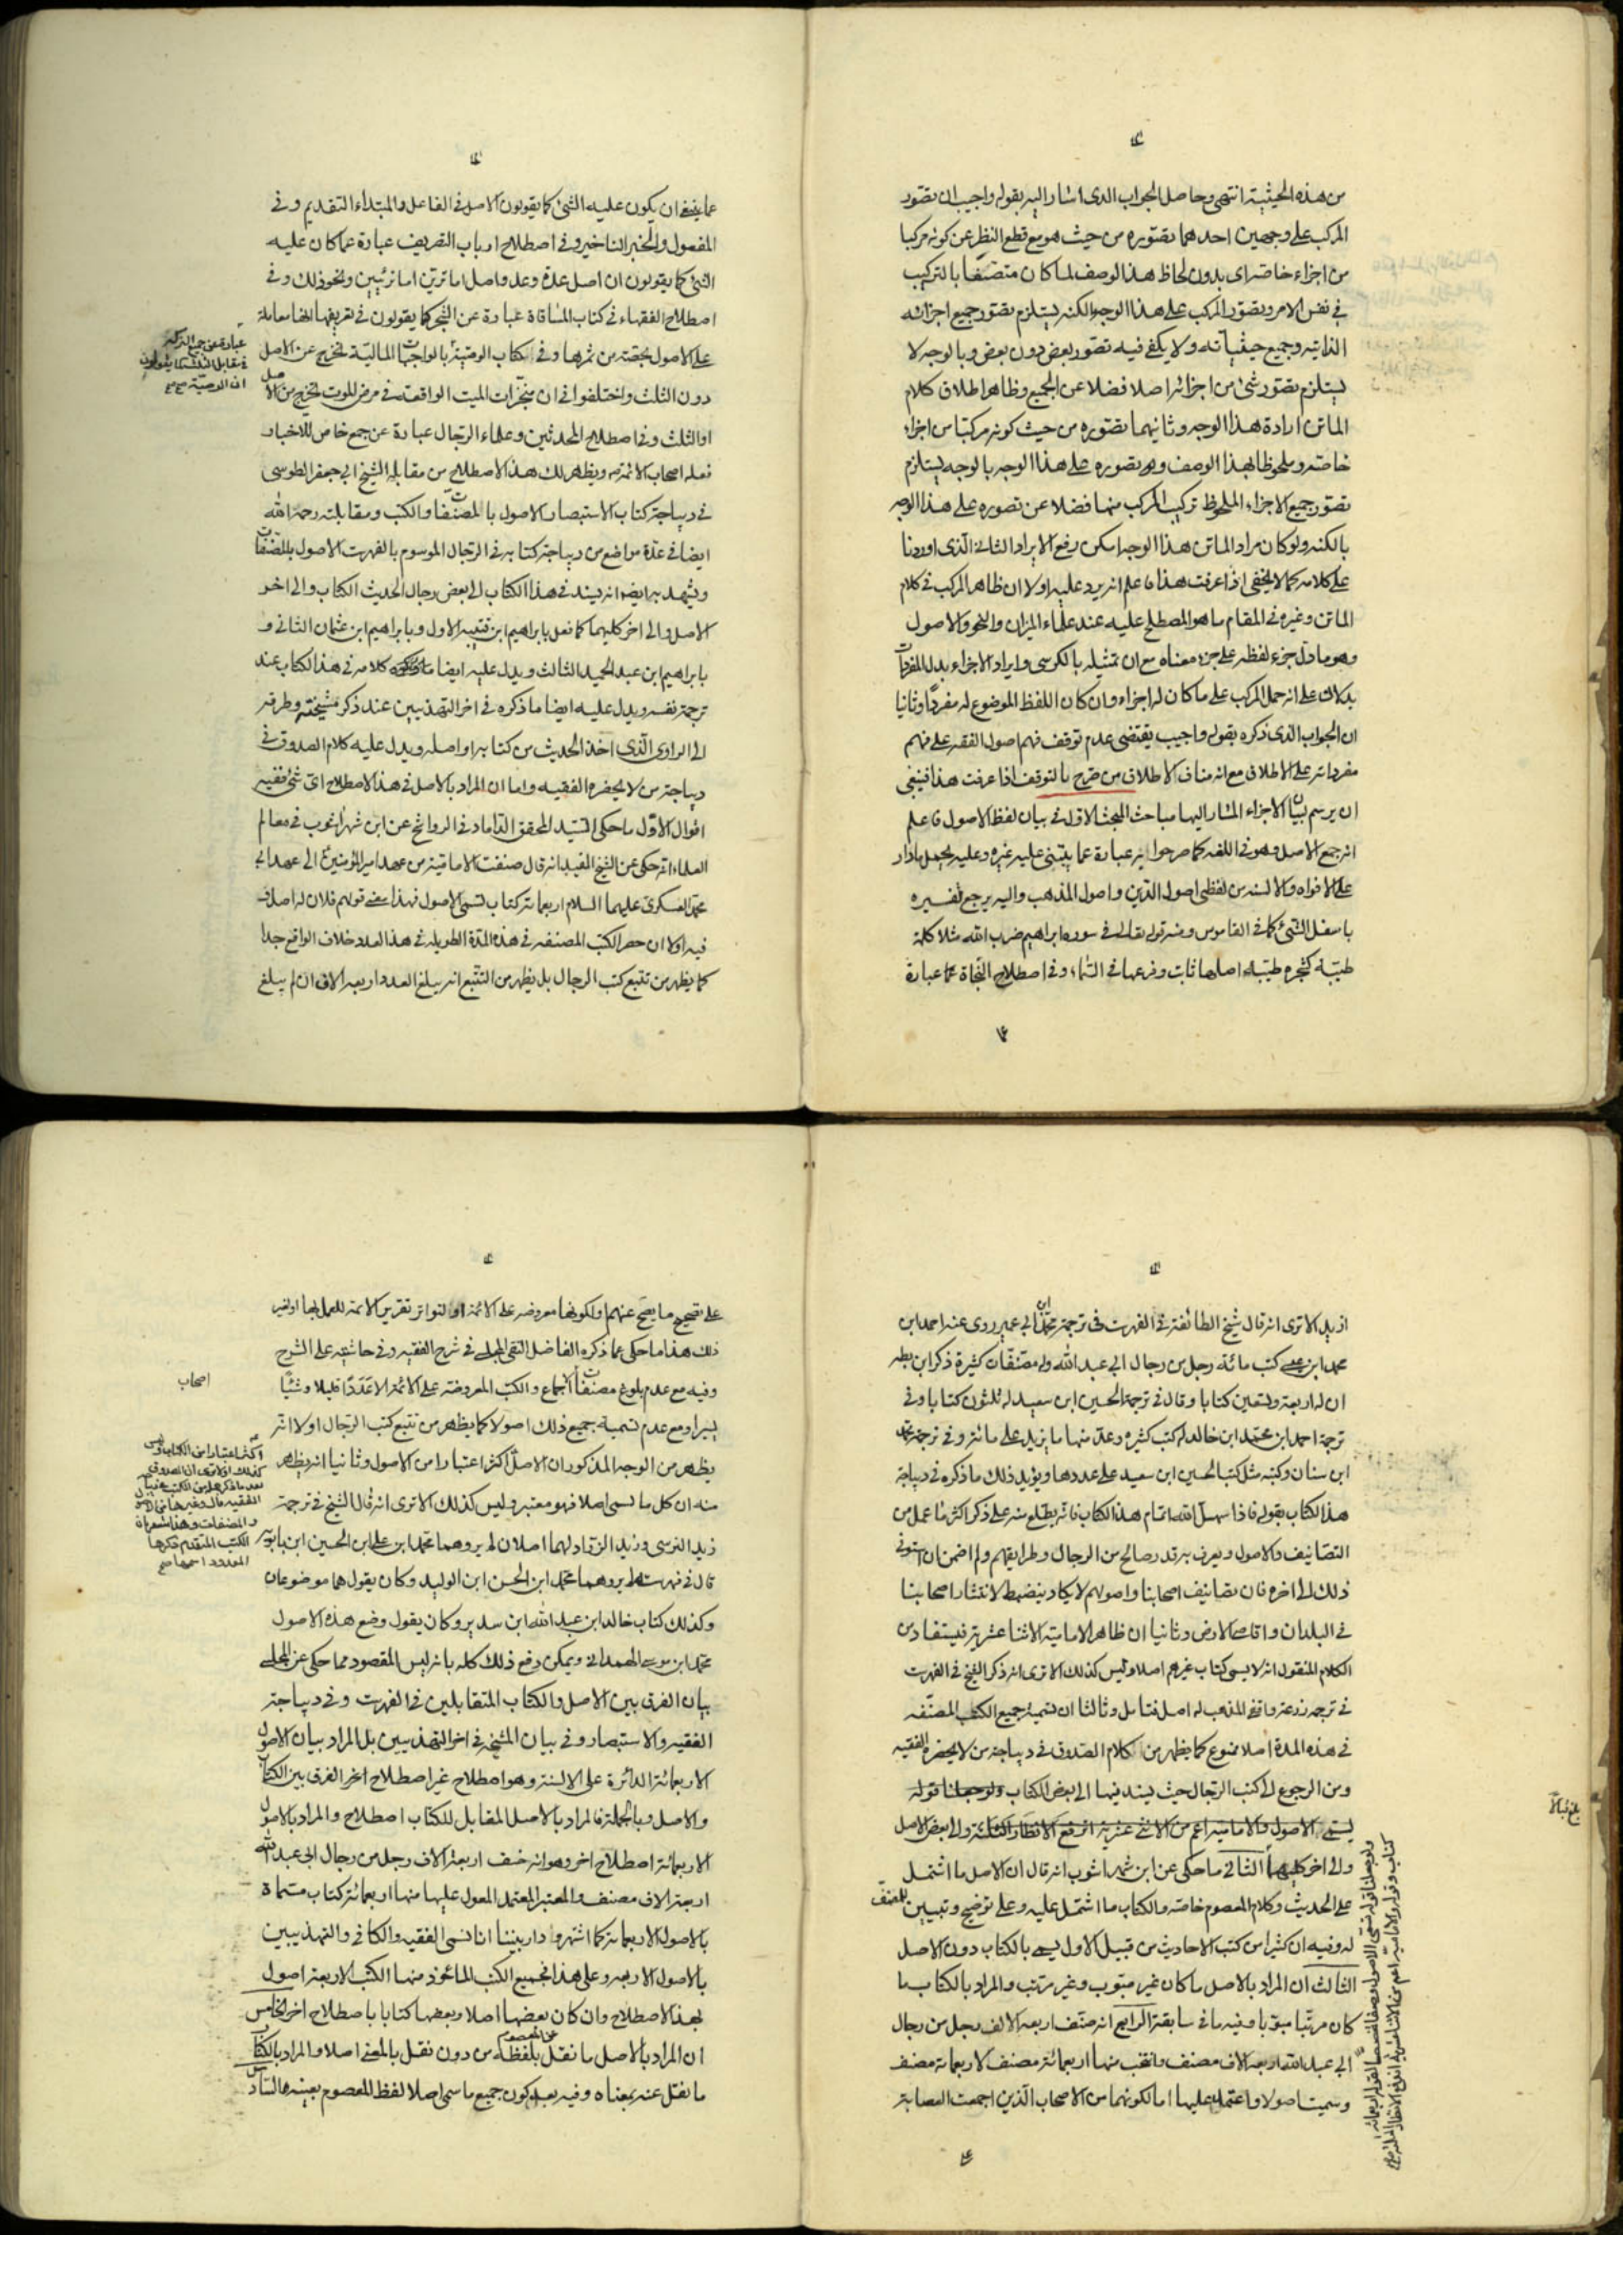 من هذه الحيثية انتهى وحاصل الجواب الذى اشار اليه بقوله واجيب ان تصور
المركب على وجهين احدهما تصوره من حيث هو مع قطع النظر عن كونه مركبا
من اجزاء خاصه اى بدون لحاظ هذا الوصف لما كان متصفا بالتركيب
فى نفس الامر وتصور المركب على هذا الوجه بالكنه يستلزم تصور جميع اجزائه
الذاتيه وجميع حيثياته ولا يكفى فيه تصور بعض دون بعض وبالوجه لا
يستلزم تصور شئ من اجزائه اصلا فضلا عن الجميع وظاهر اطلاق كلام
الماتن ارادة هذا الوجه وثانيهما تصوره من حيث كونه مركبا من اجزاء
خاصه وملحوظا بهذا الوصف وهو تصوره على هذا الوجه بالوجه يستلزم
تصور جميع الاجزاء الملحوظ تركيب المركب منها فضلا عن تصوره على هذا الوجه
بالكنه ولو كان مراد الماتن هذا الوجه امكن رفع الايراد الثانى الذى اوردنا
على كلامه كما لا يخفى اذا عرفت هذا فاعلم انه يرد عليه اولا ان ظاهر المركب فى كلام
الماتن وغيره فى المقام ما هو المصطلح عليه عند علماء الميزان والنحو والاصول
وهو ما دل جزء لفظه على جزء معناه مع ان تمثيله بالكرسى وايراد الاجزاء بدل المفردات
يدلان على انه حمل المركب على ما كان له اجزاء وان كان اللفظ الموضوع له مفردا وثانيا
ان الجواب الذى ذكره بقوله واجيب يقتضى عدم توقف فهم اصول الفقه على فهم
مفرداته على الاطلاق مع انه مناف لاطلاق من صرح بالتوقف اذا عرفت هذا فينبغى
ان يرسم بيان الاجزاء المشار اليها مباحث المبحث الاول فى بيان لفظ الاصول فاعلم
انه جمع الاصل وهو فى اللغه كما صرحوا به عبارة عما يبتنى عليه غيره وعليه يحمل مادار
على الافواه والالسنه من لفظى اصول الدين واصول المذهب واليه يرجع تفسيره
باسفل الشئ كما فى القاموس ومنه قوله تعالى فى سوره ابراهيم ضرب الله مثلا كلمة
طيبة كشجره طيبه اصلها ثابت وفرعها فى السماء وفى اصطلاح النحاة عما عبارة
عما ينبغى ان يكون عليه الشئ كما يقولون الاصل فى الفاعل والمبتداء التقديم وفى
المفعول والخبر التاخير وفى اصطلاح ارباب التصريف عبارة عما كان عليه
الشئ كما يقولون ان اصل عدة وعد واصل ونحو ذلك وفى
اصطلاح الفقهاء فى كتاب المساقاة عبارة عن الشجر كما يقولون فى تعريفها انها معاملة
على الاصول بحصة من ثمرها وفى كتاب الوصية بالواجبات المالية تخرج عن الاصل
عبارة عن جميع التركه
فى مقابل الثلث كما يقولون
ان الوصية صح
دون الثلث واختلفوا فى ان منجزات الميت الواقعة فى مرض الموت تخرج من الاصل
او الثلث وفى اصطلاح المحدثين وعلماء الرجال عبارة عن جمع خاص للاخبار
فعله اصحاب الائمة ويظهر لك هذا الاصطلاح من مقابلة الشيخ ابى جعفر الطوسى
فى ديباجة كتاب الاستبصار الاصول بالمصنفات والكتب ومقابلته رحمه الله
ايضا فى عدة مواضع من ديباجة كتابه فى الرجال الموسوم بالفهرست الاصول بالمصنفات
ويشهد به ايضا انه يسند فى هذا الكتاب الى بعض رجال الحديث الكتاب والى اخر
الاصل والى اخر كليهما كما فعل بابراهيم ابن قتيبه الاول وبابراهيم ابن عثمان الثانى و
بابراهيم ابن عبد الحميد الثالث ويدل عليه ايضا كلامه فى هذا الكتاب عند
ترجمة نفسه ويدل عليه ايضا ما ذكره فى اخر التهذيبين عند ذكر مشيخته وطرقه
الى الراوى الذى اخذ الحديث من كتابه او اصله ويدل عليه كلام الصدوق فى
ديباجة من لا يحضره الفقيه واما ان المراد بالاصل فى هذا الاصطلاح اى شئ ففيه
اقوال الاول ما حكى السيد المحقق الداماد فى الرواشح عن ابن شهراشوب فى معالم
العلماء انه حكى عن الشيخ المفيد انه قال صنفت الامامية من عهد امير المؤمنين الى عهد ابى
محمد العسكرى عليهما السلام اربعمائة كتاب تسمى الاصول فهذا معنى قولهم فلان له اصل وفيه
فيه اولا ان حصر الكتب المصنفه فى هذه المدة الطويله فى هذا العدد خلاف الواقع جدا
كما يظهر من تتبع كتب الرجال بل يظهر من التتبع انه يبلغ العدد اربعه الاف ان لم يبلغ
ازيد الا ترى انه قال شيخ الطائفة فى الفهرست فى ترجمة محمد ابن ابى عمير روى عنه احمد ابن
محمد ابن عيسى كتب مائة رجل من رجال ابى عبد الله وله مصنفات كثيرة ذكر ابن بطه
ان له اربعة وتسعين كتابا وقال فى ترجمة الحسين ابن سعيد له ثلثون كتابا وفى
ترجمة احمد ابن محمد ابن خالد له كتب كثيره وعد منها ما يزيد على مائة وفى ترجمة محمد
ابن سنان وكتبه مثل كتب الحسين ابن سعيد على عددها ويؤيد ذلك ما ذكره فى ديباجة
هذا الكتاب بقوله فاذا سهل الله اتمام هذا الكتاب فانه يطلع منه على ذكر اكثر ما عمل من
التصانيف والاصول ويعرف به قدر صالح من الرجال وطرايقهم ولم اضمن ان استوفى
ذلك الى اخره فان تصانيف اصحابنا واصولهم لا يكاد ينضبط لانتشار اصحابنا
فى البلدان واقاصى الارض وثانيا ان ظاهر الامامية الاثنا عشرية فيستفاد من
الكلام المنقول انه لا يسمى كتاب غيرهم اصلا وليس كذلك الا ترى انه ذكر الشيخ فى الفهرست
فى ترجمة زرعة واقفى المذهب له اصل فتامل وثالثا ان تسمية جميع الكتب المصنفه
فى هذه المدة اصلا ممنوع كما يظهر من كلام الصدوق فى ديباجة من لا يحضره الفقيه
ومن الرجوع الى كتب الرجال حيث يسند فيها الى بعض الكتاب ولو جعلنا قوله
يسمى الاصول والاماميه اعم من الاثنى عشرية اندفع الانظار الثلثة والى بعض الاصل
والى اخر كليهما الثانى ما حكى عن ابن شهراشوب انه قال ان الاصل ما اشتمل
على الحديث وكلام المعصوم خاصة والكتاب ما اشتمل عليه وعلى توضيح وتبيين للمصنف
له وفيه ان كثيرا من كتب الاحاديث من قبيل الاول يسمى بالكتاب دون الاصل
الثالث ان المراد بالاصل ما كان غير مبوب وغير مرتب والمراد بالكتاب ما
كان مرتبا مبوبا وفيه ما فى سابقه الرابع انه صنف اربعه الاف رجل من رجال
ابى عبد الله اربعه الاف مصنف وانتخب منها اربعمائة مصنف لاربعمائة مصنف
وسميت اصولا واعتمد عليها اما لكونهما من الاصحاب الذين اجمعت العصابة
على تصحيح ما يصح عنهم او لكونها معروضه على الائمة او لتواتر تقرير الائمة للعمل بها او لغير
ذلك هذا ما حكى عما ذكره الفاضل التقى المجلسى فى شرح الفقيه وفى حاشيته على الشرح
وفيه مع عدم بلوغ مصنفات الاجماع والكتب المعروضه على الائمة الا عددا قليلا وشيئا
اصحاب
يسيرا ومع عدم تسمية جميع ذلك اصولا كما يظهر من تتبع كتب الرجال اولا انه
يظهر من الوجه المذكور ان الاصل اكثر اعتبارا من الاصول وثانيا انه يظهر
منه ان كل ما يسمى اصلا فهو معتبر وليس كذلك الا ترى انه قال الشيخ فى ترجمة
زيد النرسى وزيد الزراد لهما اصلان لم يروهما محمد ابن على ابن الحسين ابن بابويه
قال فى فهرسته لم يروهما محمد ابن الحسن ابن الوليد وكان يقول هما موضوعان
وكذلك كتاب خالد ابن عبد الله ابن سدير وكان يقول وضع هذه الاصول
محمد ابن موسى الهمدانى ويمكن دفع ذلك كله بانه ليس المقصود مما حكى عن المجلسى
بيان الفرق بين الاصل والكتاب المتقابلين فى الفهرست وفى ديباجة
الفقيه والاستبصار وفى بيان المشيخه فى اخر التهذيبين بل المراد بيان الاصول
الاربعمائة الدائرة على الالسنة وهو اصطلاح غير اصطلاح اخر الفرق بين الكتاب
والاصل وبالجملة فالمراد بالاصل المقابل للكتاب اصطلاح والمراد بالاصول
الاربعمائة اصطلاح اخر وهو انه صنف اربعة الاف رجل من رجال ابى عبد الله
اربعة الاف مصنف والمعتبر المعتمد المعول عليها منها اربعمائة كتاب مسماة
بالاصول الاربعمائة كما اشتهر ودار بيننا انا نسمى الفقيه والكافى والتهذيبين
بالاصول الاربعه وعلى هذا فجميع الكتب الماخوذ منها الكتب الاربعة اصول
بهذا الاصطلاح وان كان بعضها اصلا وبعضها كتابا باصطلاح اخر الخامس
ان المراد بالاصل ما نقل عن المعصوم بلفظه من دون نقل بالمعنى اصلا والمراد بالكتاب
ما نقل عنه بمعناه وفيه بعد كون جميع ما سمى اصلا لفظ المعصوم بعينه السادس